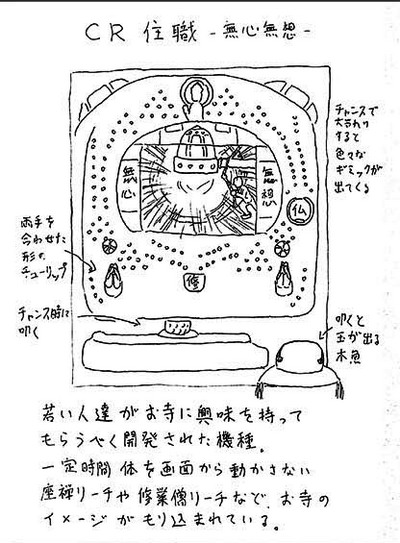 CR 住職 -無心無想-
チャンスで
大当りり
すると
色々な
ギミックが
出てくる
無心
無想
仏
両手を
合わせた
形の
チューリップ
修
チャンス時に
叩く
叩くと
玉が出る
木魚
若い人達がお寺に興味を持って
もらうべく開発された機種。
一定時間体を画面から動かさない
座禅リーチや修業僧リーチなどで、お寺の
イメージがもり込まれている。